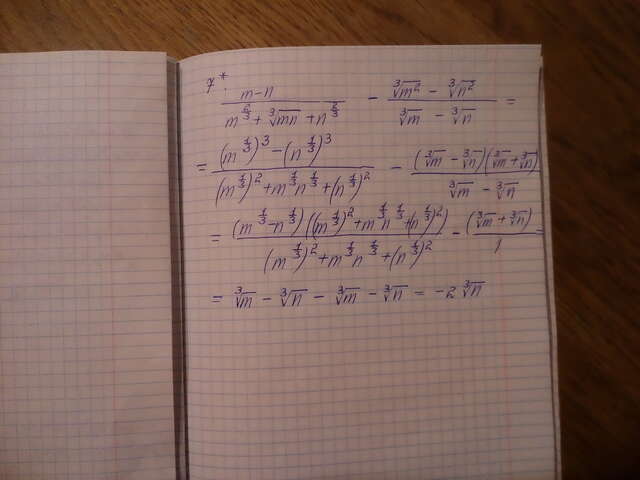 7*.
(m-n)/(m^(2/3) + ∛(mn) + n^(2/3)) - (∛(m²) - ∛(n²))/(∛m - ∛n) =
= ((m^(1/3))^3 - (n^(1/3))^3)/((m^(1/3))^2 + m^(1/3)n^(1/3) + (n^(1/3))^2) - ((∛m - ∛n)(∛m + ∛n))/(∛m - ∛n)
= ((m^(1/3) - n^(1/3))((m^(1/3))^2 + m^(1/3)n^(1/3) + (n^(1/3))^2))/((m^(1/3))^2 + m^(1/3)n^(1/3) + (n^(1/3))^2) - (∛m + ∛n)/1 =
= ∛m - ∛n - ∛m - ∛n = -2∛n